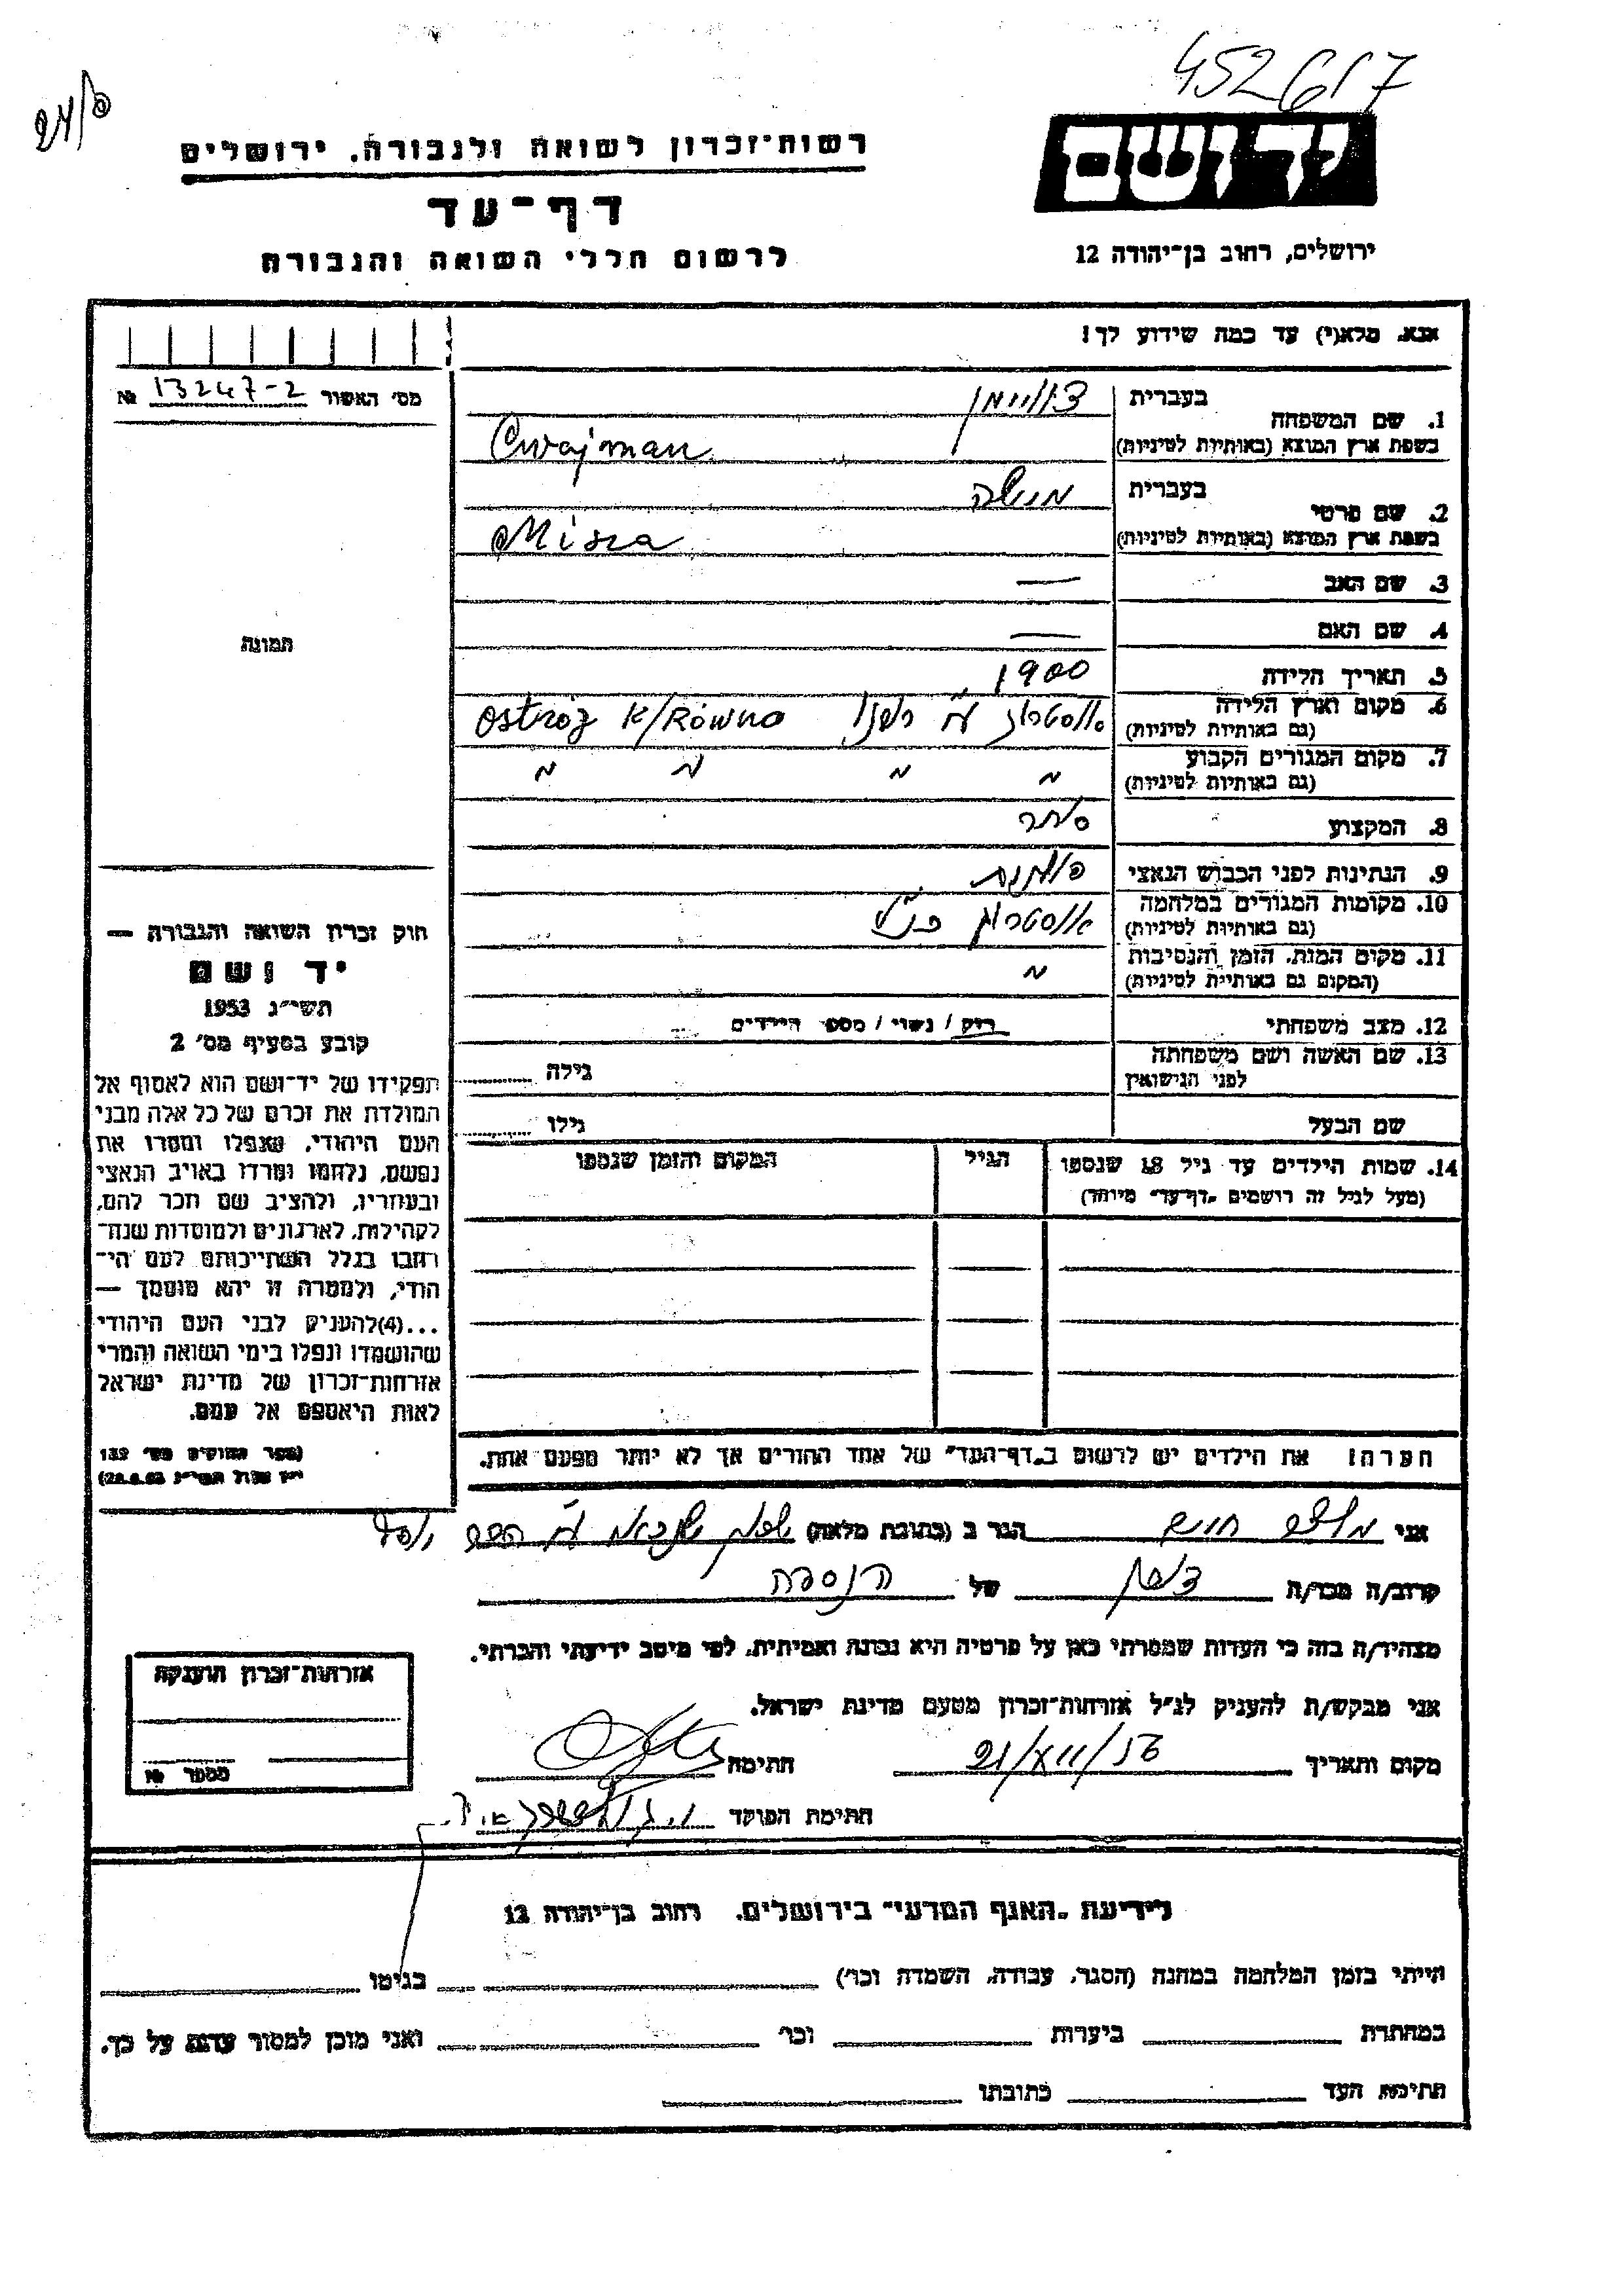 452617
רשות־זכרון לשואה ולגבורה, ירושלים
יד ושם
דף־עד
ירושלים, רחוב בן־יהודה 12
לרשום חללי השואה והגבורה
אנא, מלא(י) עד כמה שידוע לך!
מס׳ האשור 13247-2 №
1. שם המשפחה
בעברית צוויימן
בשפת ארץ המוצא (באותיות לטיניות) Cwajman
2. שם פרטי
בעברית מישה
בשפת ארץ המוצא (באותיות לטיניות) Misza
3. שם האב —
4. שם האם —
תמונה
5. תאריך הלידה 1900
6. מקום וארץ הלידה
(גם באותיות לטיניות) אוסטרוג ע״י רובנו Ostróg K/Równo
7. מקום המגורים הקבוע
(גם באותיות לטיניות) " " " "
8. המקצוע סוחר
9. הנתינות לפני הכבוש הנאצי פולנית
10. מקומות המגורים במלחמה
(גם באותיות לטיניות) אוסטרוג
11. מקום המות, הזמן והנסיבות
(המקום גם באותיות לטיניות) "
12. מצב משפחתי רוק / נשוי / מספר הילדים
13. שם האשה ושם משפחתה
לפני הנישואין גילה
שם הבעל גילו
14. שמות הילדים עד גיל 18 שנספו
(מעל לגיל זה רושמים „דף־עד״ מיוחד)
הגיל
המקום והזמן שנספו
חוק זכרון השואה והגבורה —
יד ושם
תשי״ג 1953
קובע בסעיף מס׳ 2
תפקידו של יד־ושם הוא לאסוף אל
המולדת את זכרם של כל אלה מבני
העם היהודי, שנפלו ומסרו את
נפשם, נלחמו ומרדו באויב הנאצי
ובעוזריו, ולהציב שם וזכר להם,
לקהילות, לארגונים ולמוסדות שנח־
רבו בגלל השתייכותם לעם הי־
הודי, ולמטרה זו יהא מוסמך —
...(4)להעניק לבני העם היהודי
שהושמדו ונפלו בימי השואה והמרי
אזרחות־זכרון של מדינת ישראל
לאות היאספם אל עמם.
(ספר החוקים מס׳ 132
הערה! את הילדים יש לרשום ב„דף־העד״ של אחד ההורים אך לא יותר מפעם אחת.
אני הגר ב (כתובת מלאה)
קרוב/ה מכר/ה של
מצהיר/ה בזה כי העדות שמסרתי כאן על פרטיה היא נכונה ואמיתית, לפי מיטב ידיעתי והכרתי.
אני מבקש/ת להעניק לנ״ל אזרחות־זכרון מטעם מדינת ישראל.
אזרחות־זכרון הוענקה
מספר №
מקום ותאריך חתימה
חתימת הפוקד
לידיעת „האגף המדעי״ בירושלים, רחוב בן־יהודה 12
הייתי בזמן המלחמה במחנה (הסגר, עבודה, השמדה וכו׳) בגיטו
במחתרת ביערות וכו׳ ואני מוכן למסור עדות על כך.
חתימת העד כתובתו